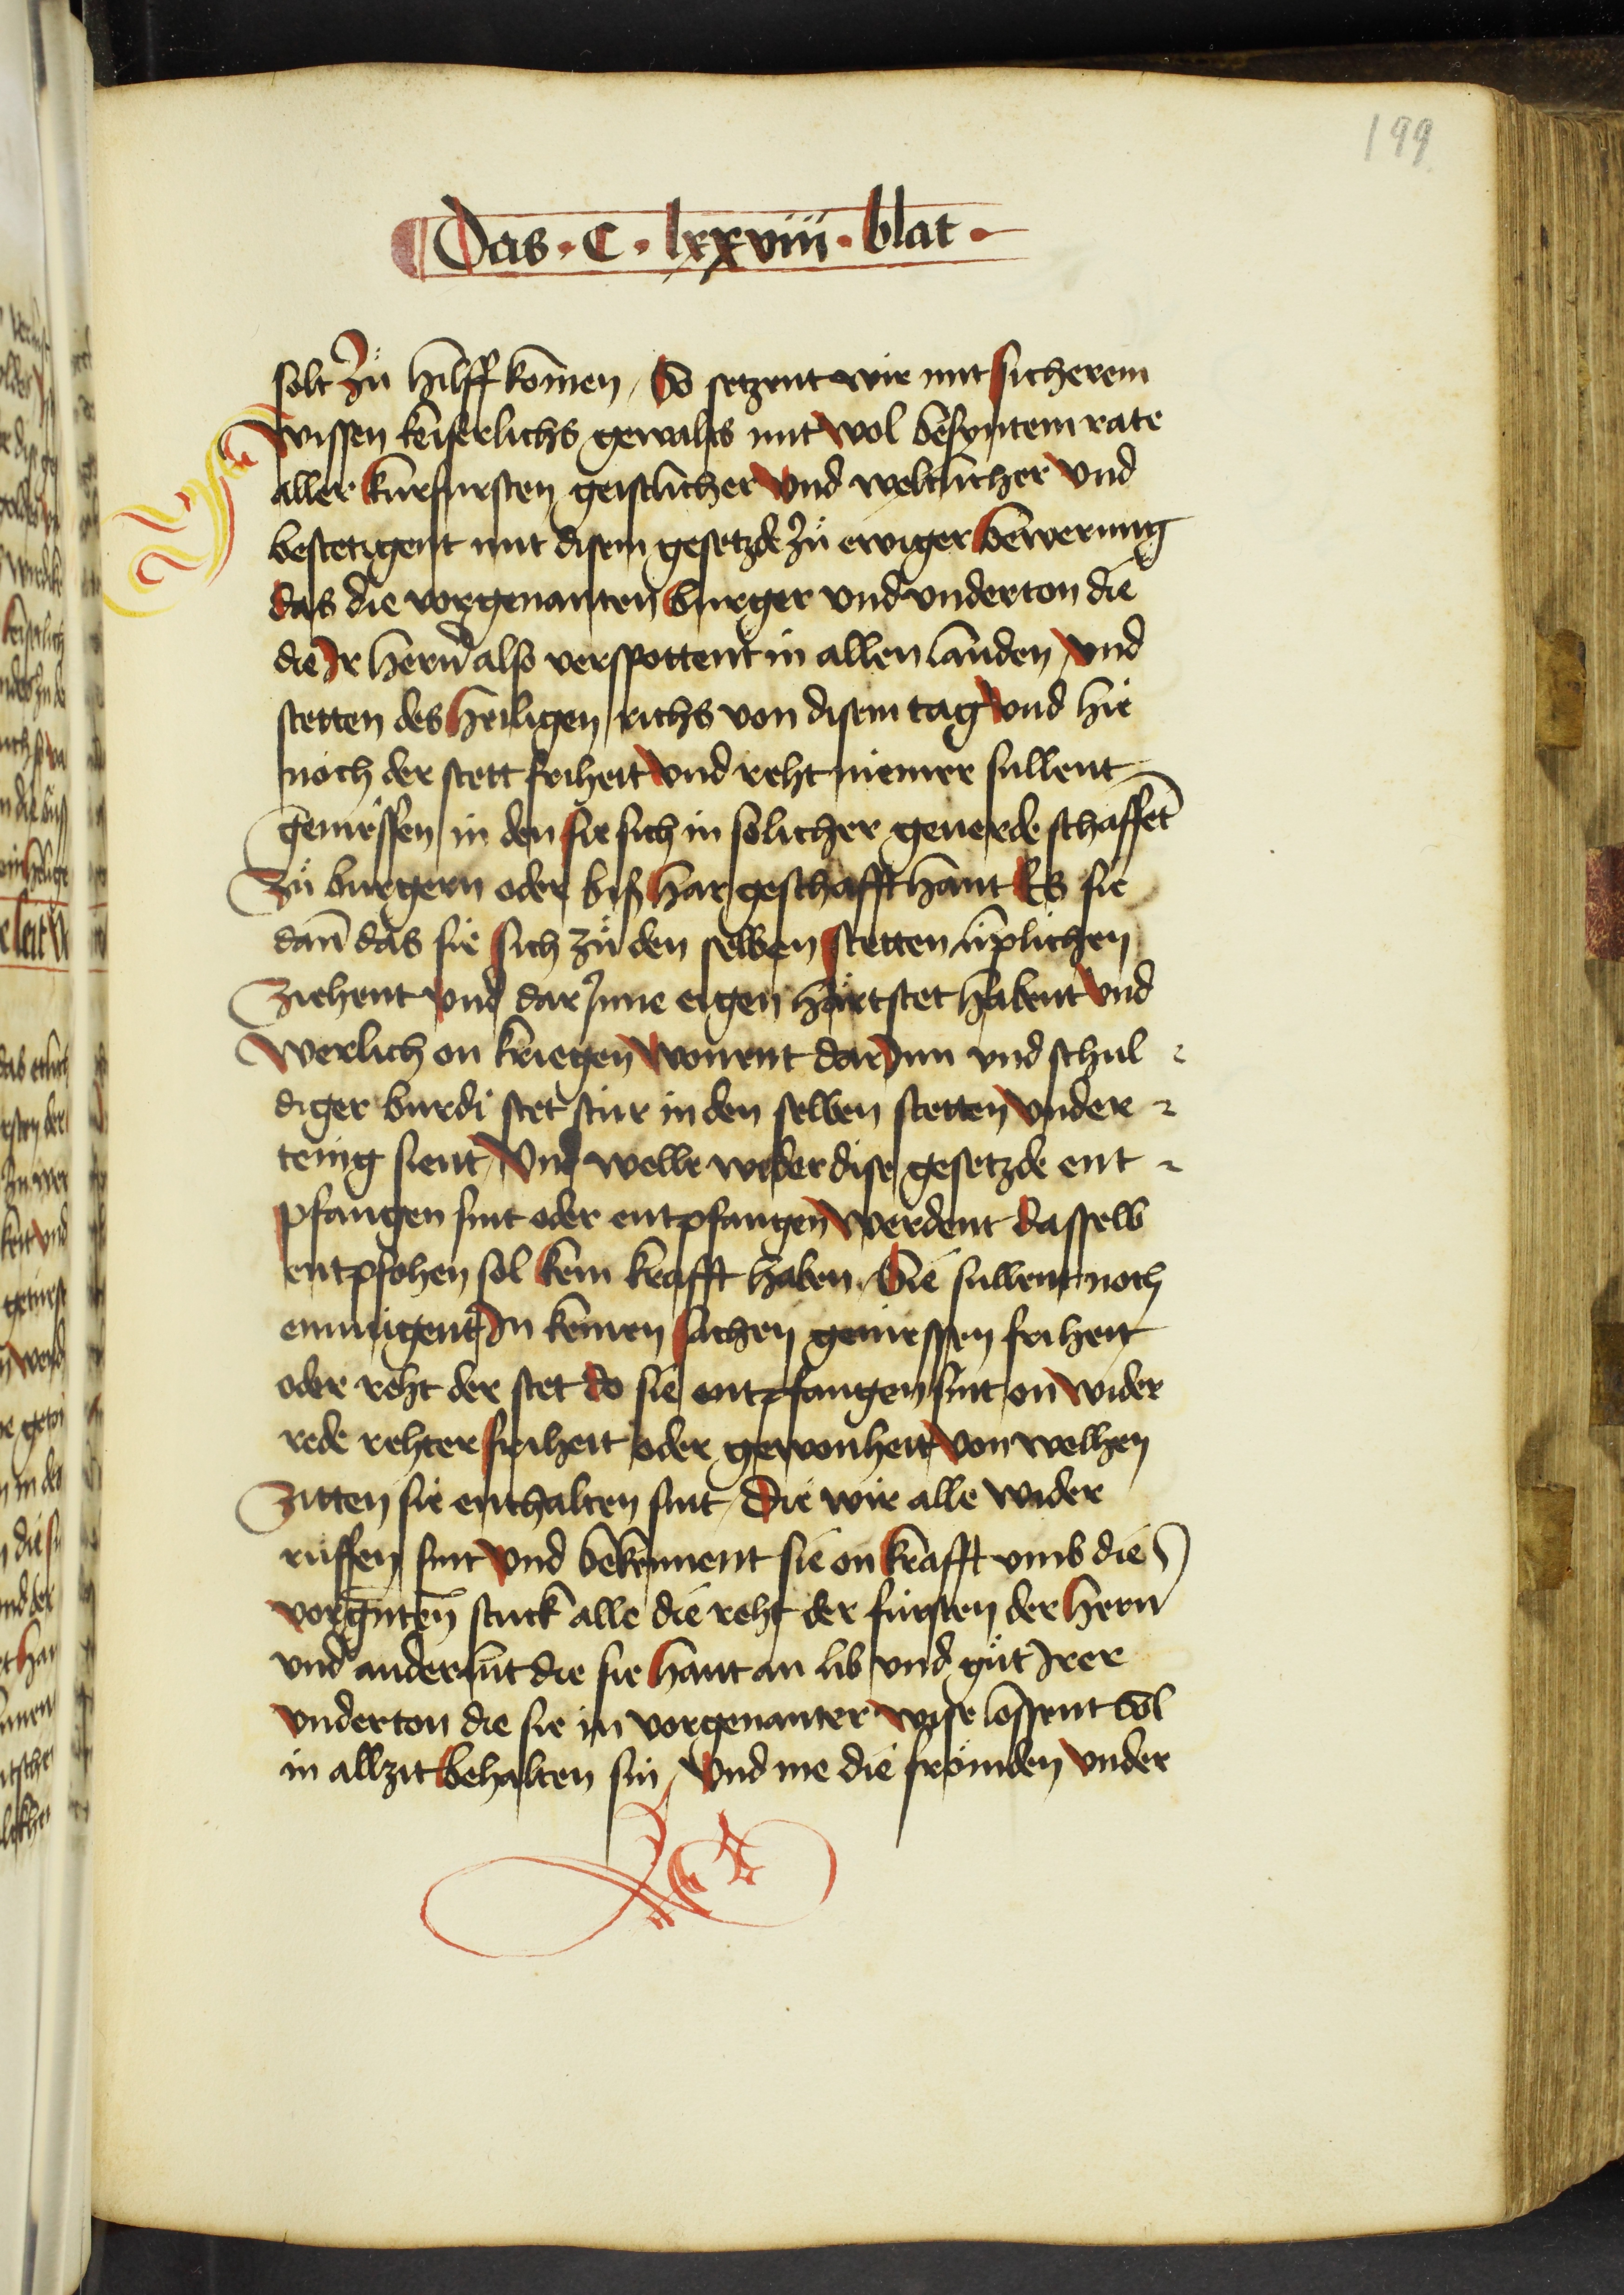 199
Das · C · lxxviii · blat ·
solt Zů hilff kom̄en / So setzent wir mit sicherem
wissen keiserlichs gewaltes mit wol besyntem rate
aller kurfursten geistlicher vnd weltlicher vnd
bestetigent mit disem gesetzde Zů ewiger bewerung
das die vorgenanten burger vnd vnderton die
die Ir hern̄ also verspottent in allen landen / vnd
stetten des heiligen richs von disem tag vnd hie
noch der stett friheit vnd reht niemer sullent
geniessen in den sie sich in solicher geuerde schaffēt
Zů burgern oder biß har geschafft hant Es sie
dan̄ das sie sich zů den selben stetten liplichen
Ziehent vnd dar Inne eigen hartstet habent vnd
werlich on kriegen wonent dar Inn vnd schul
diger burdi stet stür in den selben stetten vnder
tenig sient / Vnd welle wider dise gesetzde ent
pfangen sint oder entpfangen werdent dasselb
entpfohen sol kein krafft haben / Sie sullent noch
enmigent In keinen sachen geniessen friheit
oder reht der stet do sie entpfangen sint on wider
rede rehter friheit oder gewonheit von welhen
Zitten sie enthalten sint / Die wir alle wider
rüffen sint vnd bekennent sie on krafft vmb die
vorgn̄ten stuck alle die reht der fürsten der hern̄
vnd ander lüt die sie hant an lib vnd gůt Irer
vnderton die sie in vorgenanter wise lossent sol
in allzit behalten sin / Vnd me die frömden vnder